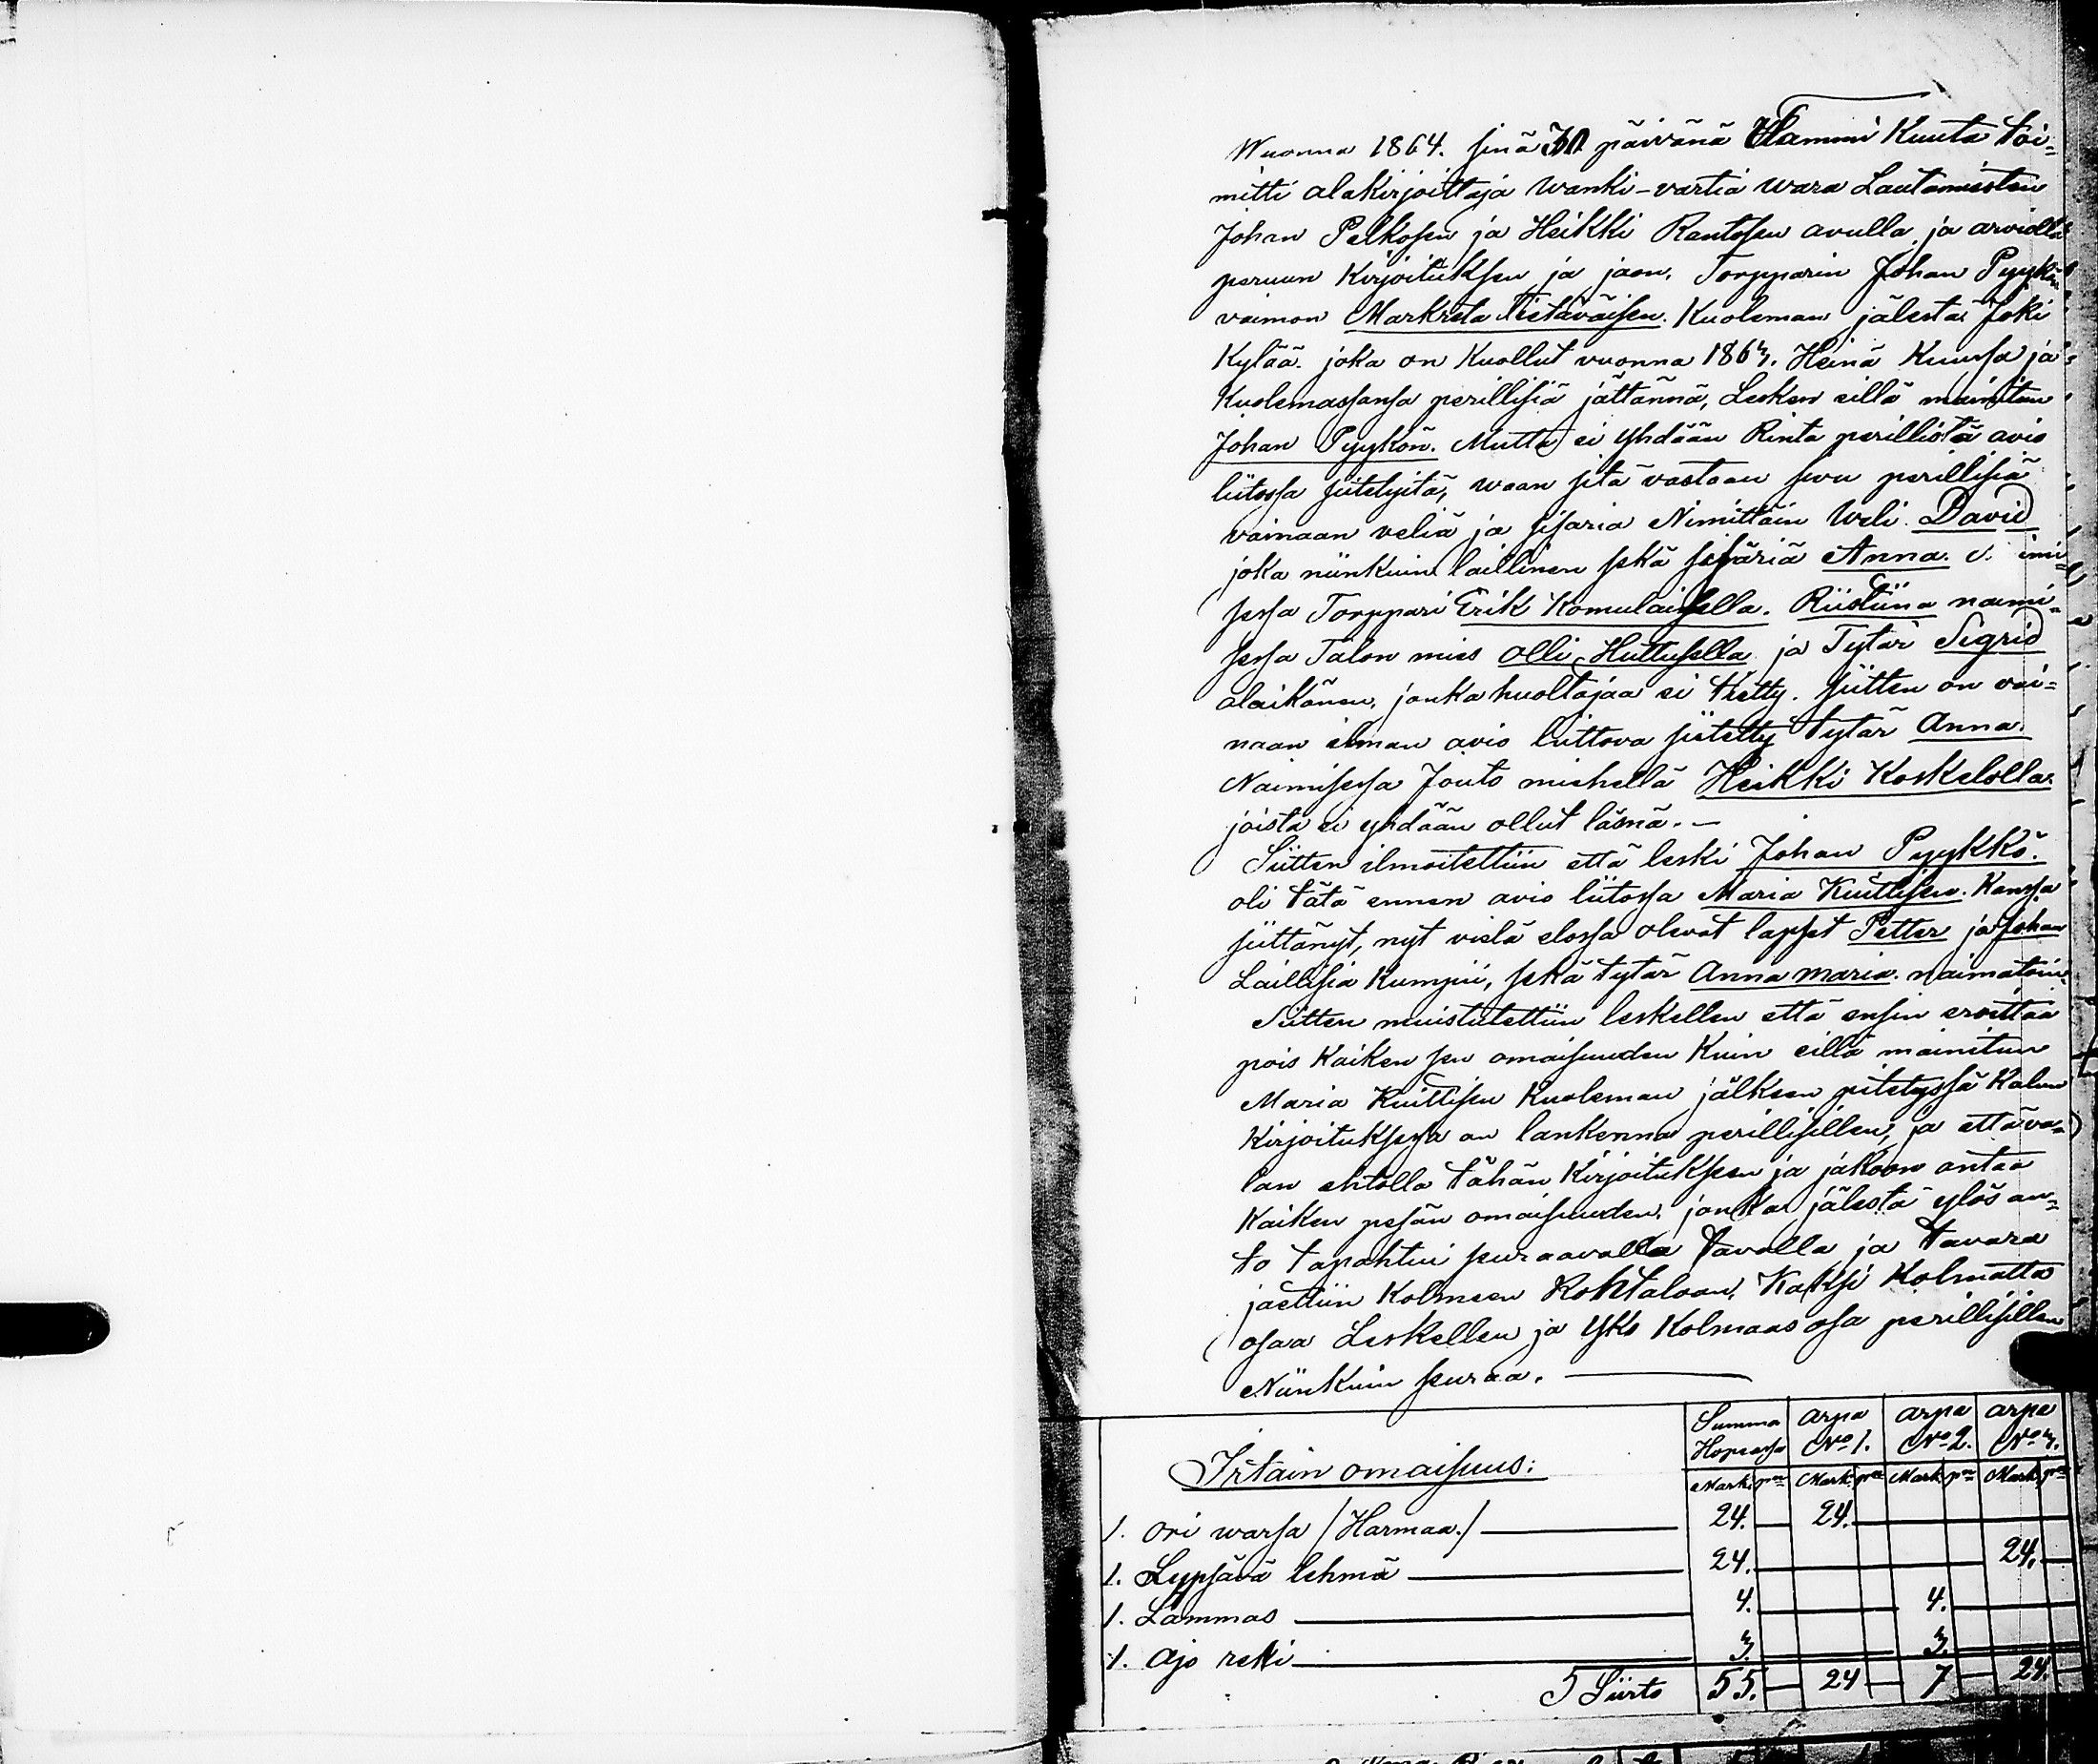 Wuonna 1864. sinä 30 päivänä Tammi Kuuta toi=
mitti alakirjoittaja Wanki-vartia Wara Lautamiesten
Johan Pelkosen ja Heikki Rantosen avulla ja arviolla
peruun Kirjoituksen ja jaon, Torpparin Johan Pyykön
vaimon Markreta Tietäväisen. Kuoleman jälestä Joki
Kylää. joka on Kuollut vuonna 1863. Heinä Kuussa ja
Kuolemassansa perillisiä jättännä, Lesken eillä mainitun
Johan Pyykön. Mutta ei yhdään Rinta perillistä avio
liitossa siitetyitä, waan sitä vastaan suvu perillisiä
vainaan veliä ja sisaria Nimittäin Weli David
joka niinkuin laillinen sekä sisäriä Anna.
sessa Torppari Erik Komulaisella. Riistiina naimi=
sessa Talon mies Olli Huttusella ja Tytär Sigrid
alaikänen, jonka huoltajaa ei tietty. siitten on vai=
naan ilman avio liittova siitetty tytär Anna.
Naimisessa Jouto miehellä Heikki Koskelolla.
joista ei yhdään ollut läsnä. —
Siitten ilmoitettiin että leski Johan Pyykkö.
oli tätä ennen avio liitossa Maria Kuittisen. Kanssa
siittänyt, nyt vielä elossa olevat lapset Petter ja Johan
Laillisia Kumpii, sekä tytär Anna Maria. naimatoin
Siitten muistutettiin leskellen että ensin eroittaa
pois Kaiken sen omaisuuden Kuin eillä mainitun
Maria Kuittisen Kuoleman jälkeen pitetyssä Kalun
Kirjoituksessa on lankenna perillisillen, ja että va=
lan ehtolla tähän Kirjoituksen ja jakoon antaa
Kaiken pesän omaisuuden. jonka jälestä ylös an=
to tapahtui seuraavalla tavalla ja tavara
jaettiin Kolmeen Kohtaloon, Kaksi Kolmatta
osaa Leskellen ja yks Kolmaas osa perillisillen
Niinkuin seuraa. —
Irtain omaisuus:
Summa Hopeassa
arpa No 1.
arpa No 2.
arpa No 3.
Mark. pää Mark. pää Mark. pää Mark. pää
1. Ori warsa /Harmaa./ 24. — 24.
1. Lypsävä lehmä 24. 24. —
1. Lammas 4. 4.
1. Ajo reki 3. 3.
Siirto 55. — 24 — 7 — 24. —